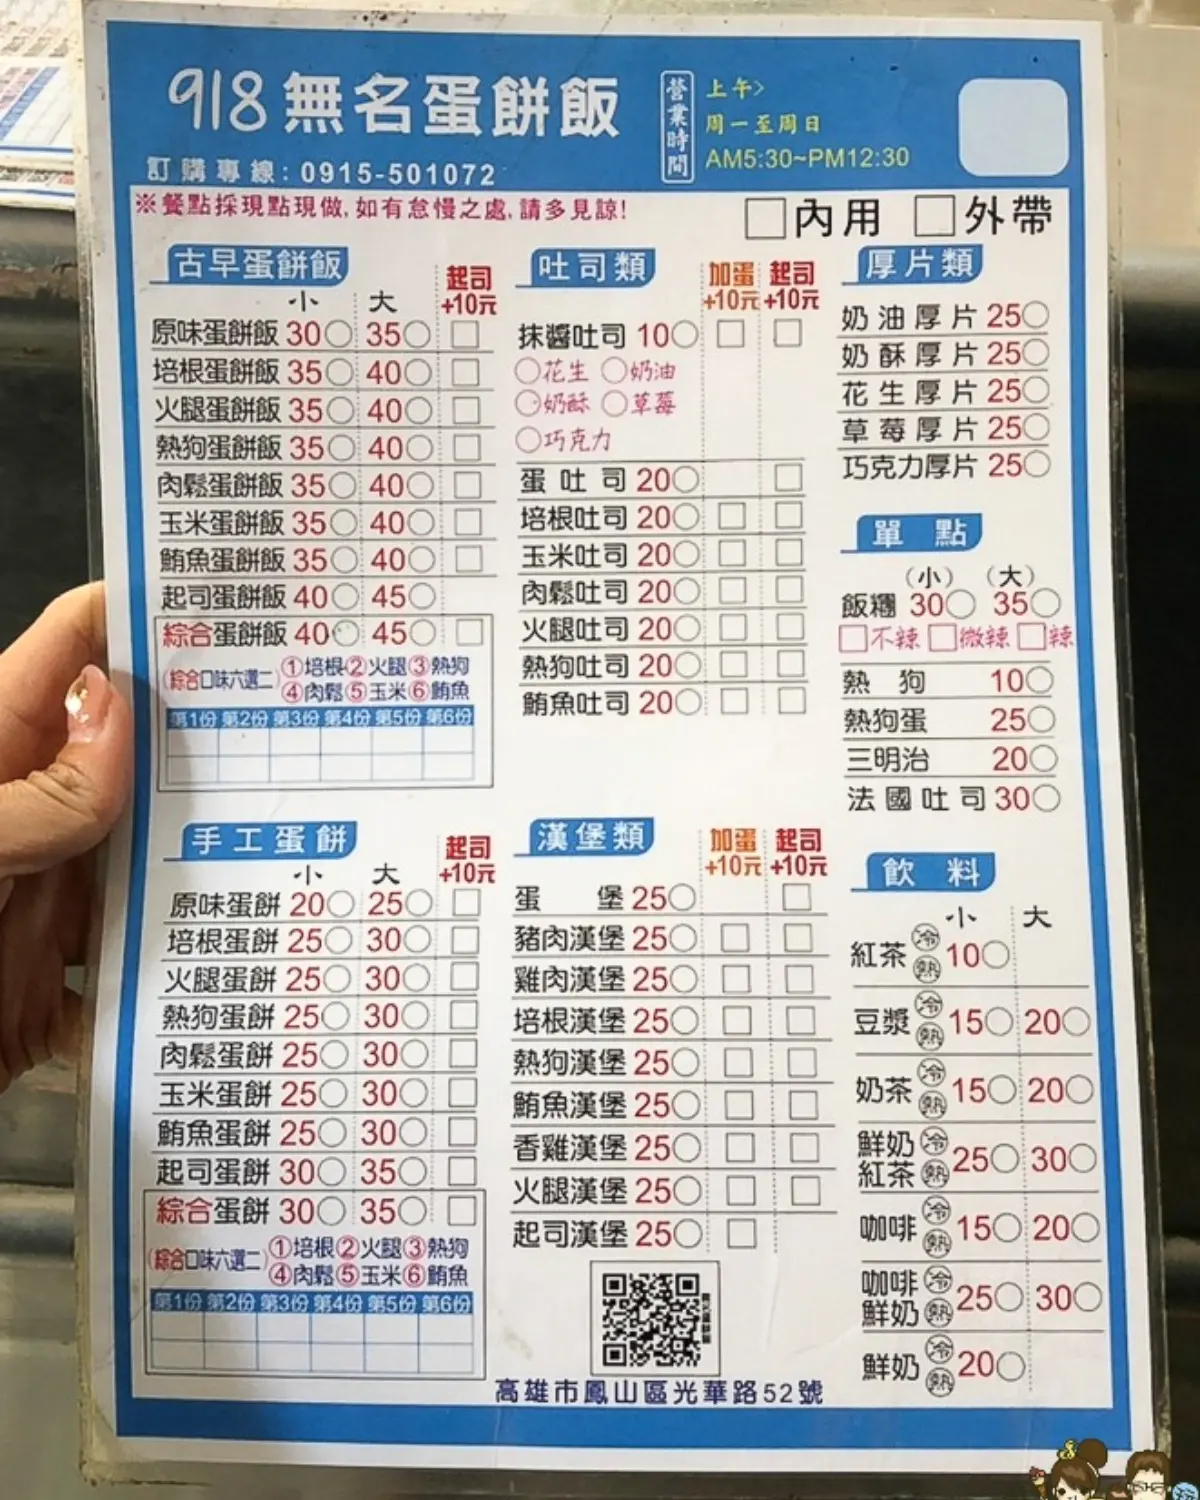 918無名蛋餅飯
訂購專線：0915-501072
營業時間
上午>
周一至周日
AM5:30~PM12:30
※餐點採現點現做,如有怠慢之處,請多見諒!
□內用 □外帶
古早蛋餅飯
小 大 起司+10元
原味蛋餅飯 30○ 35○ □
培根蛋餅飯 35○ 40○ □
火腿蛋餅飯 35○ 40○ □
熱狗蛋餅飯 35○ 40○ □
肉鬆蛋餅飯 35○ 40○ □
玉米蛋餅飯 35○ 40○ □
鮪魚蛋餅飯 35○ 40○ □
起司蛋餅飯 40○ 45○
綜合蛋餅飯 40○ 45○ □
(綜合口味六選二)
①培根②火腿③熱狗
④肉鬆⑤玉米⑥鮪魚
第1份 第2份 第3份 第4份 第5份 第6份
手工蛋餅
小 大 起司+10元
原味蛋餅 20○ 25○ □
培根蛋餅 25○ 30○ □
火腿蛋餅 25○ 30○ □
熱狗蛋餅 25○ 30○ □
肉鬆蛋餅 25○ 30○ □
玉米蛋餅 25○ 30○ □
鮪魚蛋餅 25○ 30○ □
起司蛋餅 30○ 35○ □
綜合蛋餅 30○ 35○ □
(綜合口味六選二)
①培根②火腿③熱狗
④肉鬆⑤玉米⑥鮪魚
第1份 第2份 第3份 第4份 第5份 第6份
吐司類
加蛋+10元 起司+10元
抹醬吐司 10○ □ □
○花生 ○奶油
○奶酥 ○草莓
○巧克力
蛋吐司 20○ □
培根吐司 20○ □ □
玉米吐司 20○ □ □
肉鬆吐司 20○ □ □
火腿吐司 20○ □ □
熱狗吐司 20○ □ □
鮪魚吐司 20○ □ □
漢堡類
加蛋+10元 起司+10元
蛋堡 25○ □
豬肉漢堡 25○ □ □
雞肉漢堡 25○ □ □
培根漢堡 25○ □ □
熱狗漢堡 25○ □ □
鮪魚漢堡 25○ □ □
香雞漢堡 25○ □ □
火腿漢堡 25○ □ □
起司漢堡 25○ □
高雄市鳳山區光華路52號
厚片類
奶油厚片 25○
奶酥厚片 25○
花生厚片 25○
草莓厚片 25○
巧克力厚片 25○
單點
(小) (大)
飯糰 30○ 35○
□不辣 □微辣 □辣
熱狗 10○
熱狗蛋 25○
三明治 20○
法國吐司 30○
飲料
小 大
紅茶 冷 熱 10○
豆漿 冷 熱 15○ 20○
奶茶 冷 熱 15○ 20○
鮮奶紅茶 冷 熱 25○ 30○
咖啡 冷 熱 15○ 20○
咖啡鮮奶 冷 熱 25○ 30○
鮮奶 冷 熱 20○